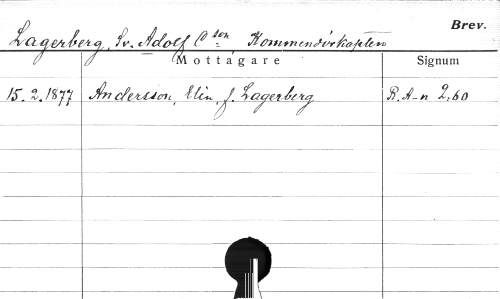 Brev.
Lagerberg, Sv. Adolf C:son Kommendörkapten
Mottagare Signum
15.2.1877 Andersson, Elin, f. Lagerberg R.A-n 2:60